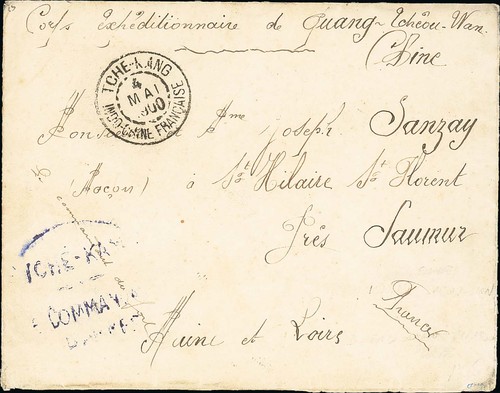 Corps expéditionnaire de Quang-Tchéou-Wan.
Chine
TCHE-KANG
4
MAI
900
INDO-CHINE FRANÇAISE
Monsieur et Mme Joseph Sanzay
(Maçon) à St Hilaire St Florent
Près Saumur
Maine et Loire
France
TCHE-KA
COMMAN